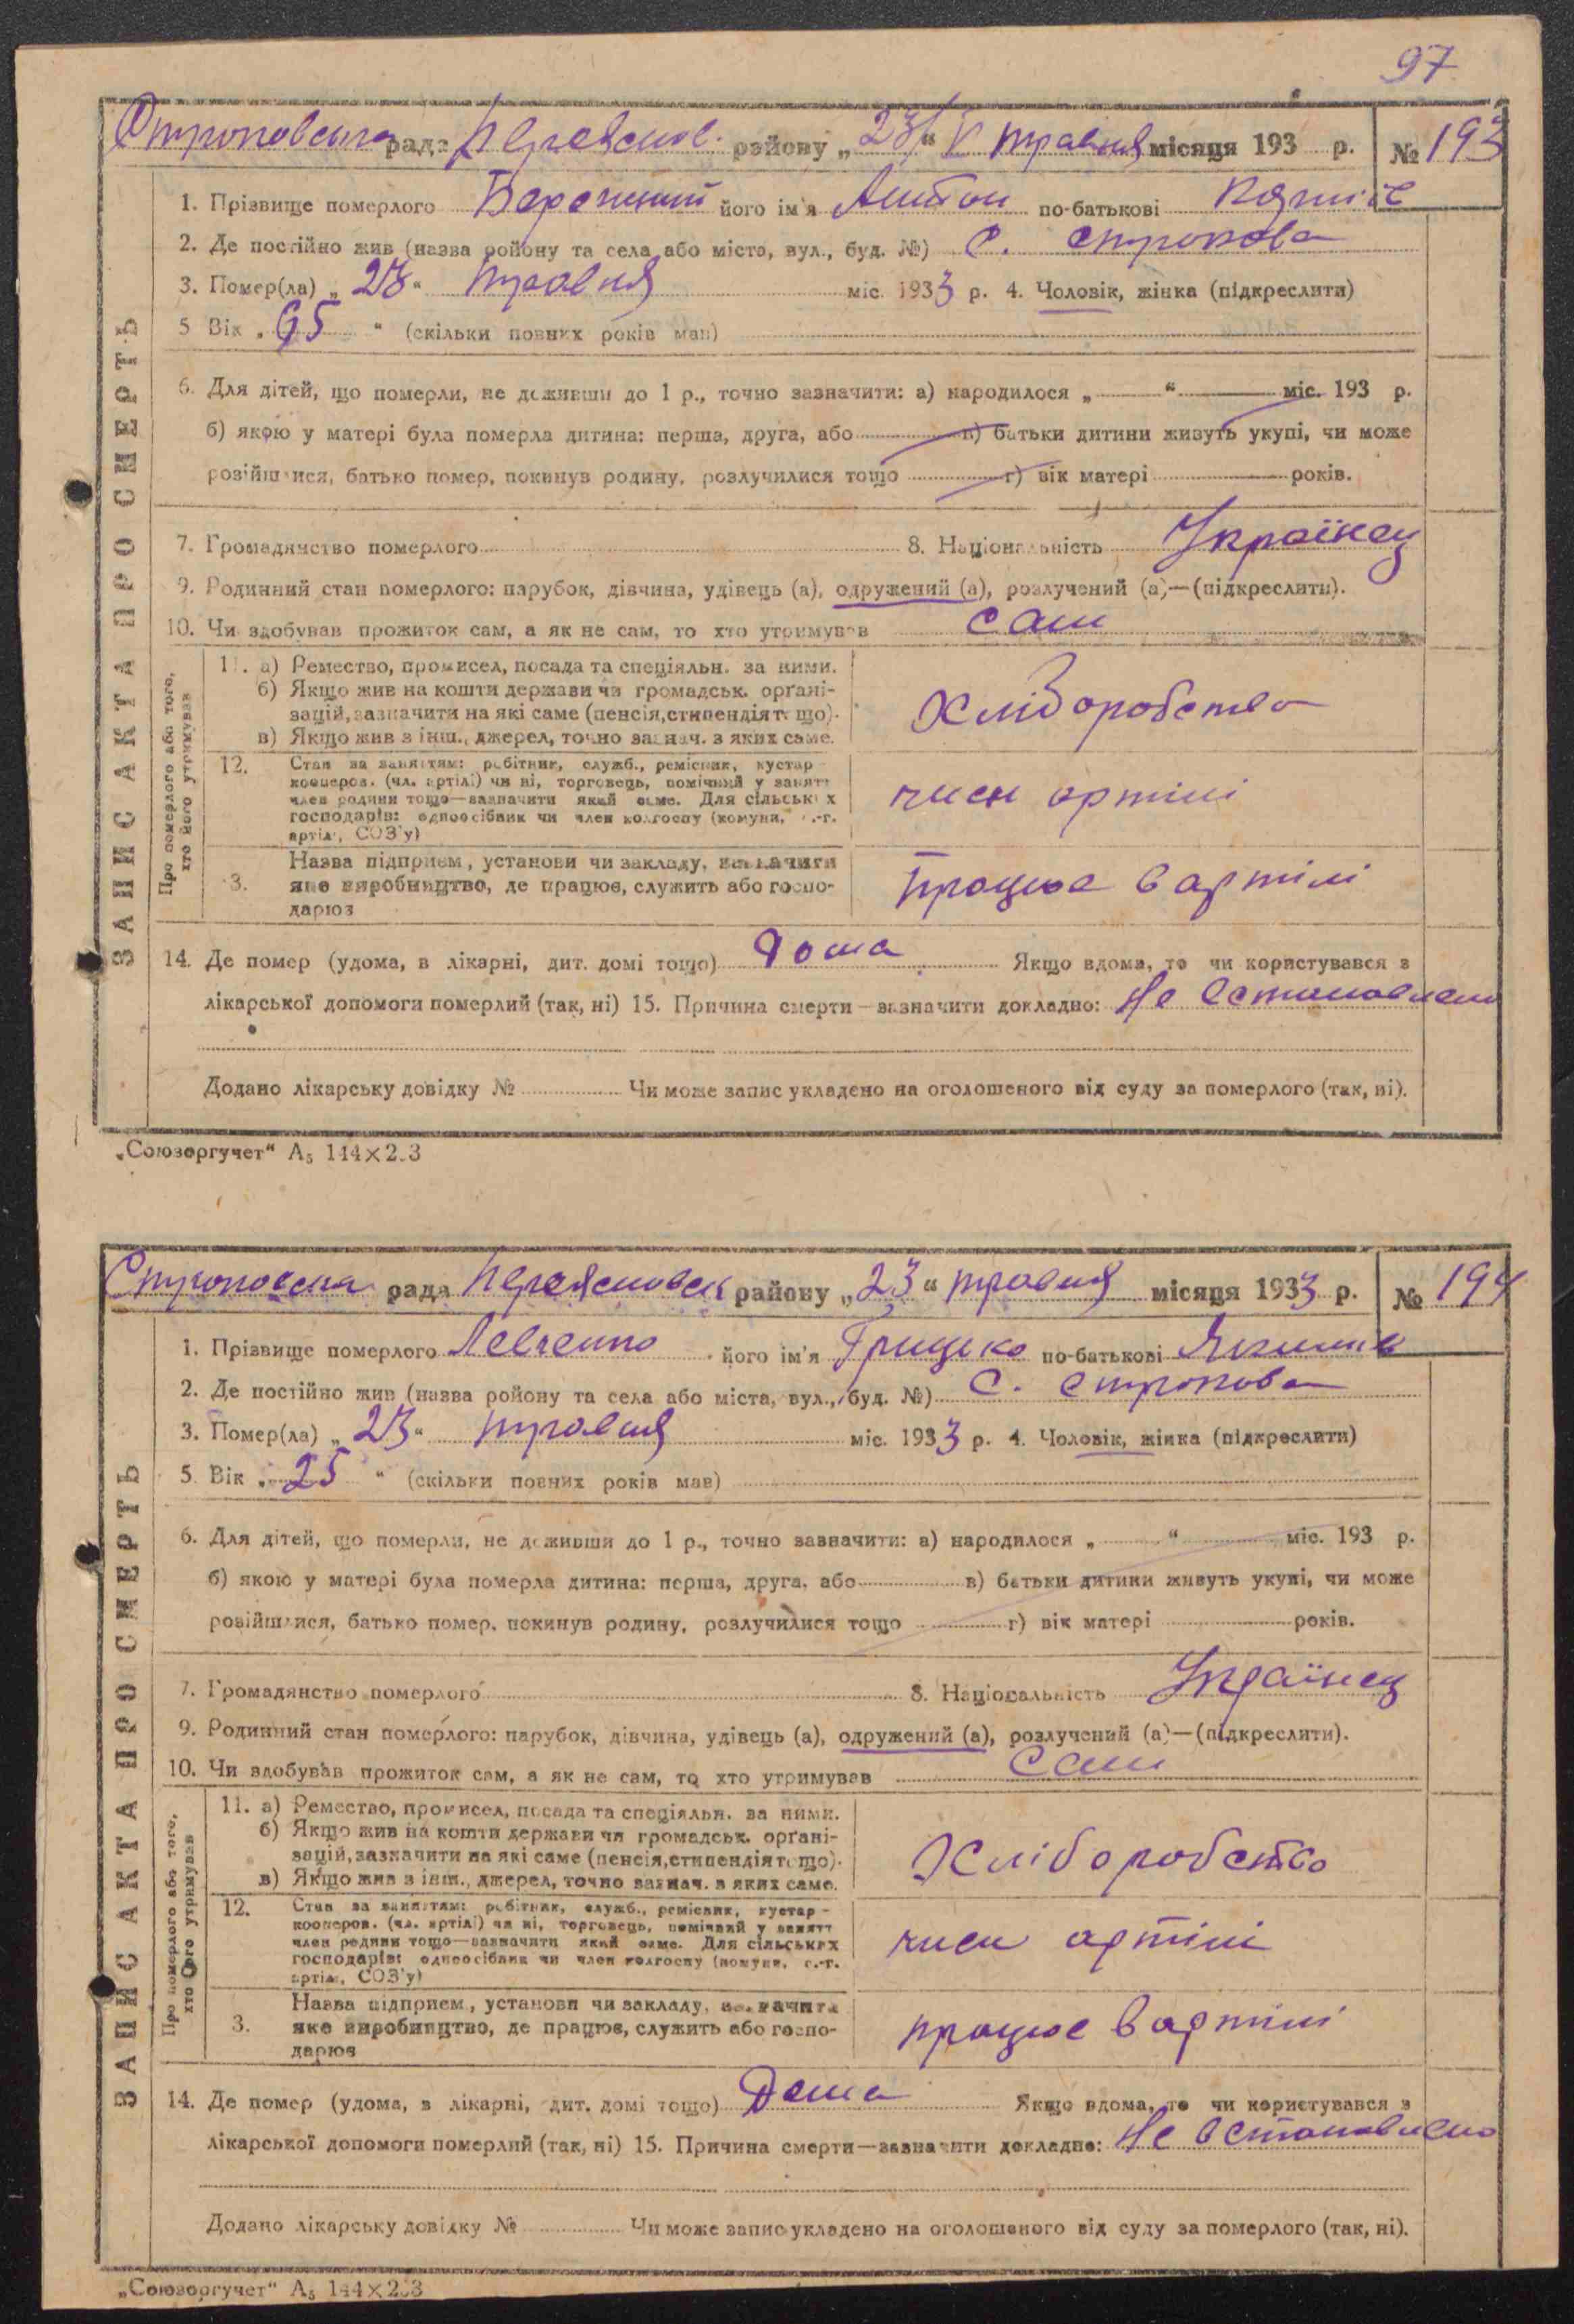 97
Строповська рада Переяслов. району „23“ V травня місяця 193 р. № 193
1. Прізвище померлого його ім'я Антон по-батькові
2. Де постійно жив (назва ройону та села або міста, вул., буд. №) С. Стропова
3. Помер(ла) „23“ травня міс. 1933 р. 4. Чоловік, жінка (підкреслити)
5 Вік „65“ (скільки повних років мав)
6. Для дітей, що померли, не доживши до 1 р., точно зазначити: а) народилося „ “ міс. 193 р.
б) якою у матері була померла дитина: перша, друга, або в) батьки дитини живуть укупі, чи може
розійшлися, батько помер, покинув родину, розлучилися тощо г) вік матері років.
7. Громадянство померлого 8. Національність Українец
9. Родинний стан померлого: парубок, дівчина, удівець (а), одружений (а), розлучений (а)—(підкреслити).
10. Чи здобував прожиток сам, а як не сам, то хто утримував сам
ЗАПИС АКТА ПРО СМЕРТЬ
Про померлого або того, хто його утримував
11. а) Ремество, промисел, посада та спеціяльн. за ними.
б) Якщо жив на кошти держави чи громадськ. орґані-
зацій, зазначити на які саме (пенсія, стипендія т. що).
в) Якщо жив з інш., джерел, точно зазнач. з яких саме.
Хліборобство
12. Стан за заняттям: робітник, служб., ремісник, кустар -
кооперов. (чл. артілі) чи ні, торговець, помічний у занятт
член родини тощо—зазначити який саме. Для сільських
господарів: одноосібник чи член колгоспу (комуни, с.-г.
артіл., СОЗ'у)
член артілі
3. Назва підприєм., установи чи закладу, зазначити
яке виробництво, де працює, служить або госпо-
дарює
працює в артілі
14. Де помер (удома, в лікарні, дит. домі тощо) Дома Якщо вдома, то чи користувався з
лікарської допомоги померлий (так, ні) 15. Причина смерти—зазначити докладно: Не встановлено
Додано лікарську довідку № Чи може запис укладено на оголошеного від суду за померлого (так, ні).
„Союзоргучет“ А₅ 144×203
Строповска рада Переясловск району „23“ травня місяця 1933 р. № 194
1. Прізвище померлого Левченко його ім'я Грицько по-батькові Якимів
2. Де постійно жив (назва ройону та села або міста, вул., буд. №) С. Стропова
3. Помер(ла) „23“ травня міс. 1933 р. 4. Чоловік, жінка (підкреслити)
5. Вік „25“ (скільки повних років мав)
6. Для дітей, що померли, не доживши до 1 р., точно зазначити: а) народилося „ “ міс. 193 р.
б) якою у матері була померла дитина: перша, друга, або в) батьки дитини живуть укупі, чи може
розійшлися, батько помер, покинув родину, розлучилися тощо г) вік матері років.
7. Громадянство померлого 8. Національність Українец
9. Родинний стан померлого: парубок, дівчина, удівець (а), одружений (а), розлучений (а)—(підкреслити).
10. Чи здобував прожиток сам, а як не сам, то хто утримував Сам
ЗАПИС АКТА ПРО СМЕРТЬ
Про померлого або того, хто його утримував
11. а) Ремество, промисел, посада та спеціяльн. за ними.
б) Якщо жив на кошти держави чи громадськ. орґані-
зацій, зазначити на які саме (пенсія, стипендія т. що).
в) Якщо жив з інш., джерел, точно зазнач. з яких саме.
Хліборобство
12. Стан за заняттям: робітник, служб., ремісник, кустар -
кооперов. (чл. артілі) чи ні, торговець, помічний у занятт
член родини тощо—зазначити який саме. Для сільських
господарів: одноосібник чи член колгоспу (комуни, с.-г.
артіл., СОЗ'у)
член артілі
3. Назва підприєм., установи чи закладу, зазначити
яке виробництво, де працює, служить або госпо-
дарює
працює в артілі
14. Де помер (удома, в лікарні, дит. домі тощо) Дома Якщо вдома, то чи користувався з
лікарської допомоги померлий (так, ні) 15. Причина смерти—зазначити докладно: Не встановлено
Додано лікарську довідку № Чи може запис укладено на оголошеного від суду за померлого (так, ні).
„Союзоргучет“ А₅ 144×203